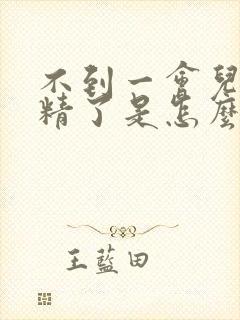 不到一會兒
精了是怎麼
王藍田